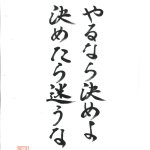 やるなら決めよ
決めたら迷うな